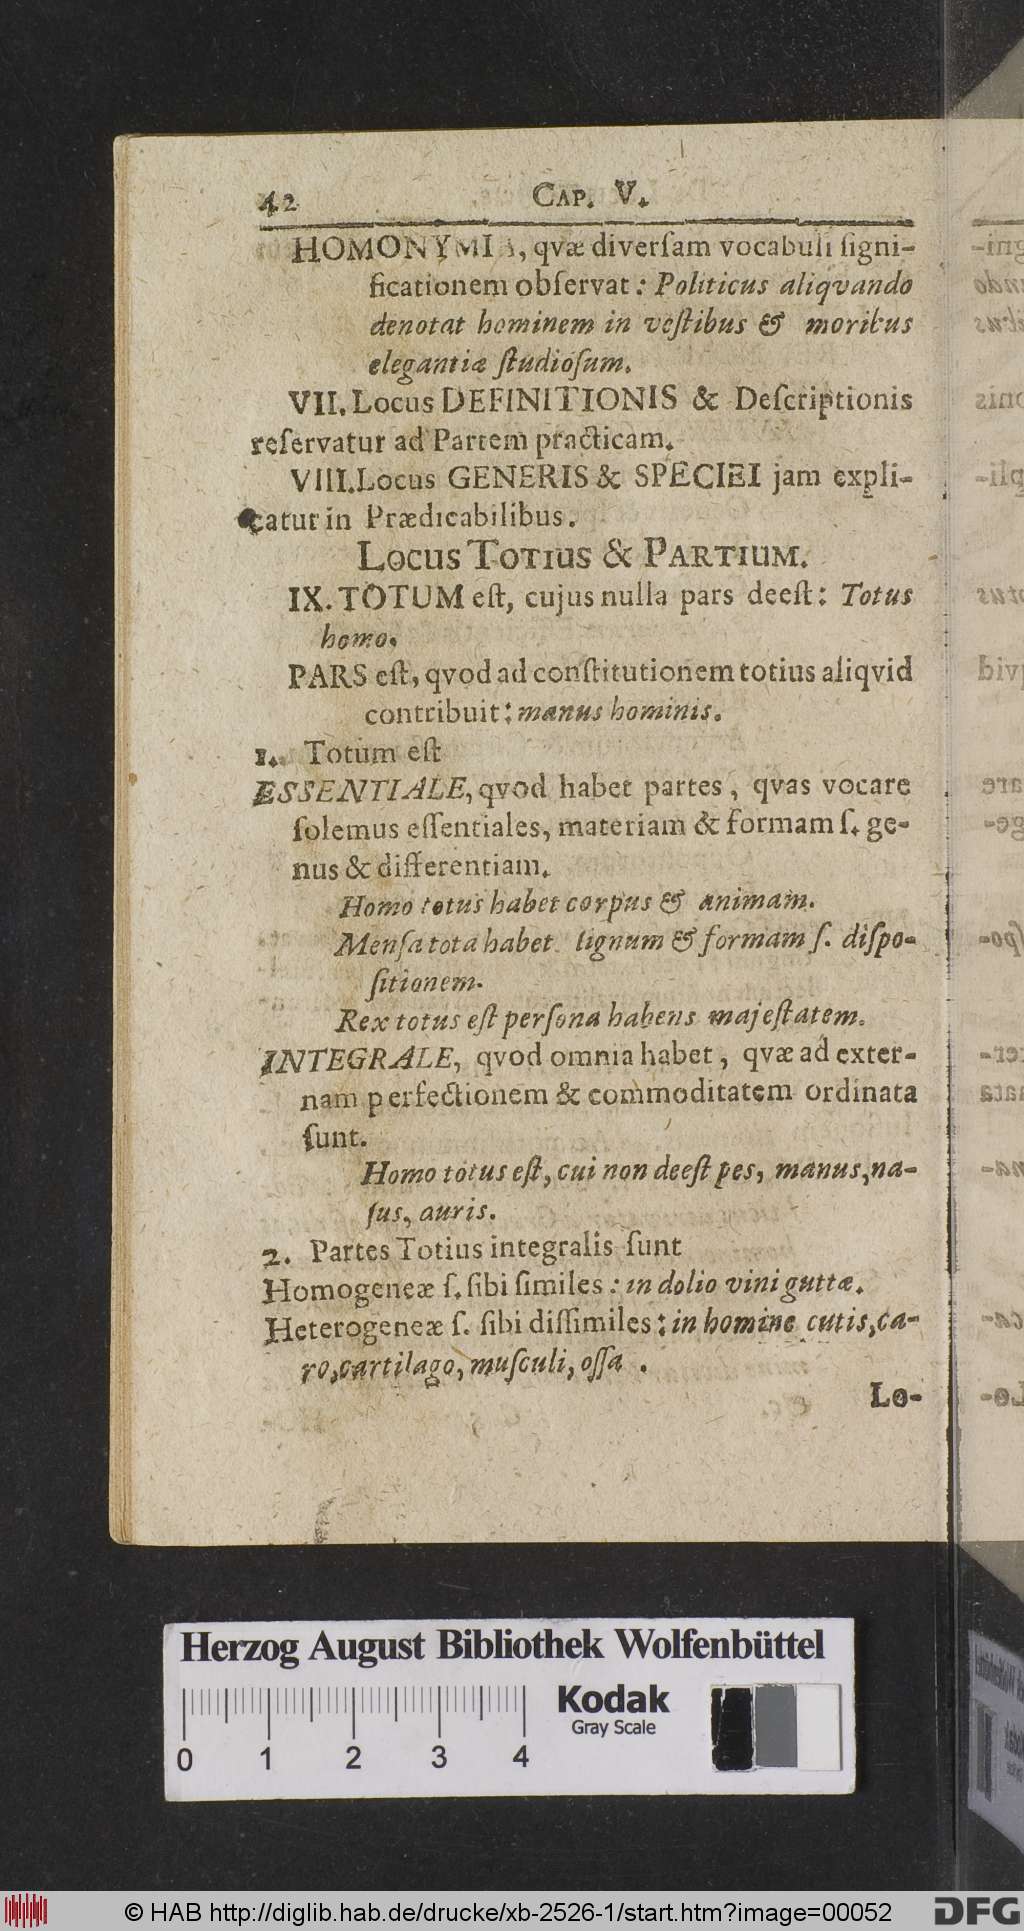 42 CAP. V.
HOMONYMIA, qvæ diverſam vocabuli ſigni-
ficationem obſervat: Politicus aliqvando
denotat hominem in veſtibus & moribus
elegantiæ ſtudioſum.
VII. Locus DEFINITIONIS & Deſcriptionis
reſervatur ad Partem practicam.
VIII. Locus GENERIS & SPECIEI jam expli-
catur in Prædicabilibus.
LOCUS TOTIUS & PARTIUM.
IX. TOTUM eſt, cujus nulla pars deeſt: Totus
homo.
PARS eſt, qvod ad conſtitutionem totius aliqvid
contribuit: manus hominis.
1. Totum eſt
ESSENTIALE, qvod habet partes, qvas vocare
ſolemus eſſentiales, materiam & formam ſ. ge-
nus & differentiam.
Homo totus habet corpus & animam.
Menſa tota habet lignum & formam ſ. diſpo-
ſitionem.
Rex totus eſt perſona habens majeſtatem.
INTEGRALE, qvod omnia habet, qvæ ad exter-
nam perfectionem & commoditatem ordinata
ſunt.
Homo totus eſt, cui non deeſt pes, manus, na-
ſus, auris.
2. Partes Totius integralis ſunt
Homogeneæ ſ. ſibi ſimiles: in dolio vini guttæ.
Heterogeneæ ſ. ſibi diſſimiles: in homine cutis, ca-
ro, cartilago, muſculi, oſſa.
Lo-
Herzog August Bibliothek Wolfenbüttel
Kodak
Gray Scale
0 1 2 3 4
© HAB http://diglib.hab.de/drucke/xb-2526-1/start.htm?image=00052
DFG